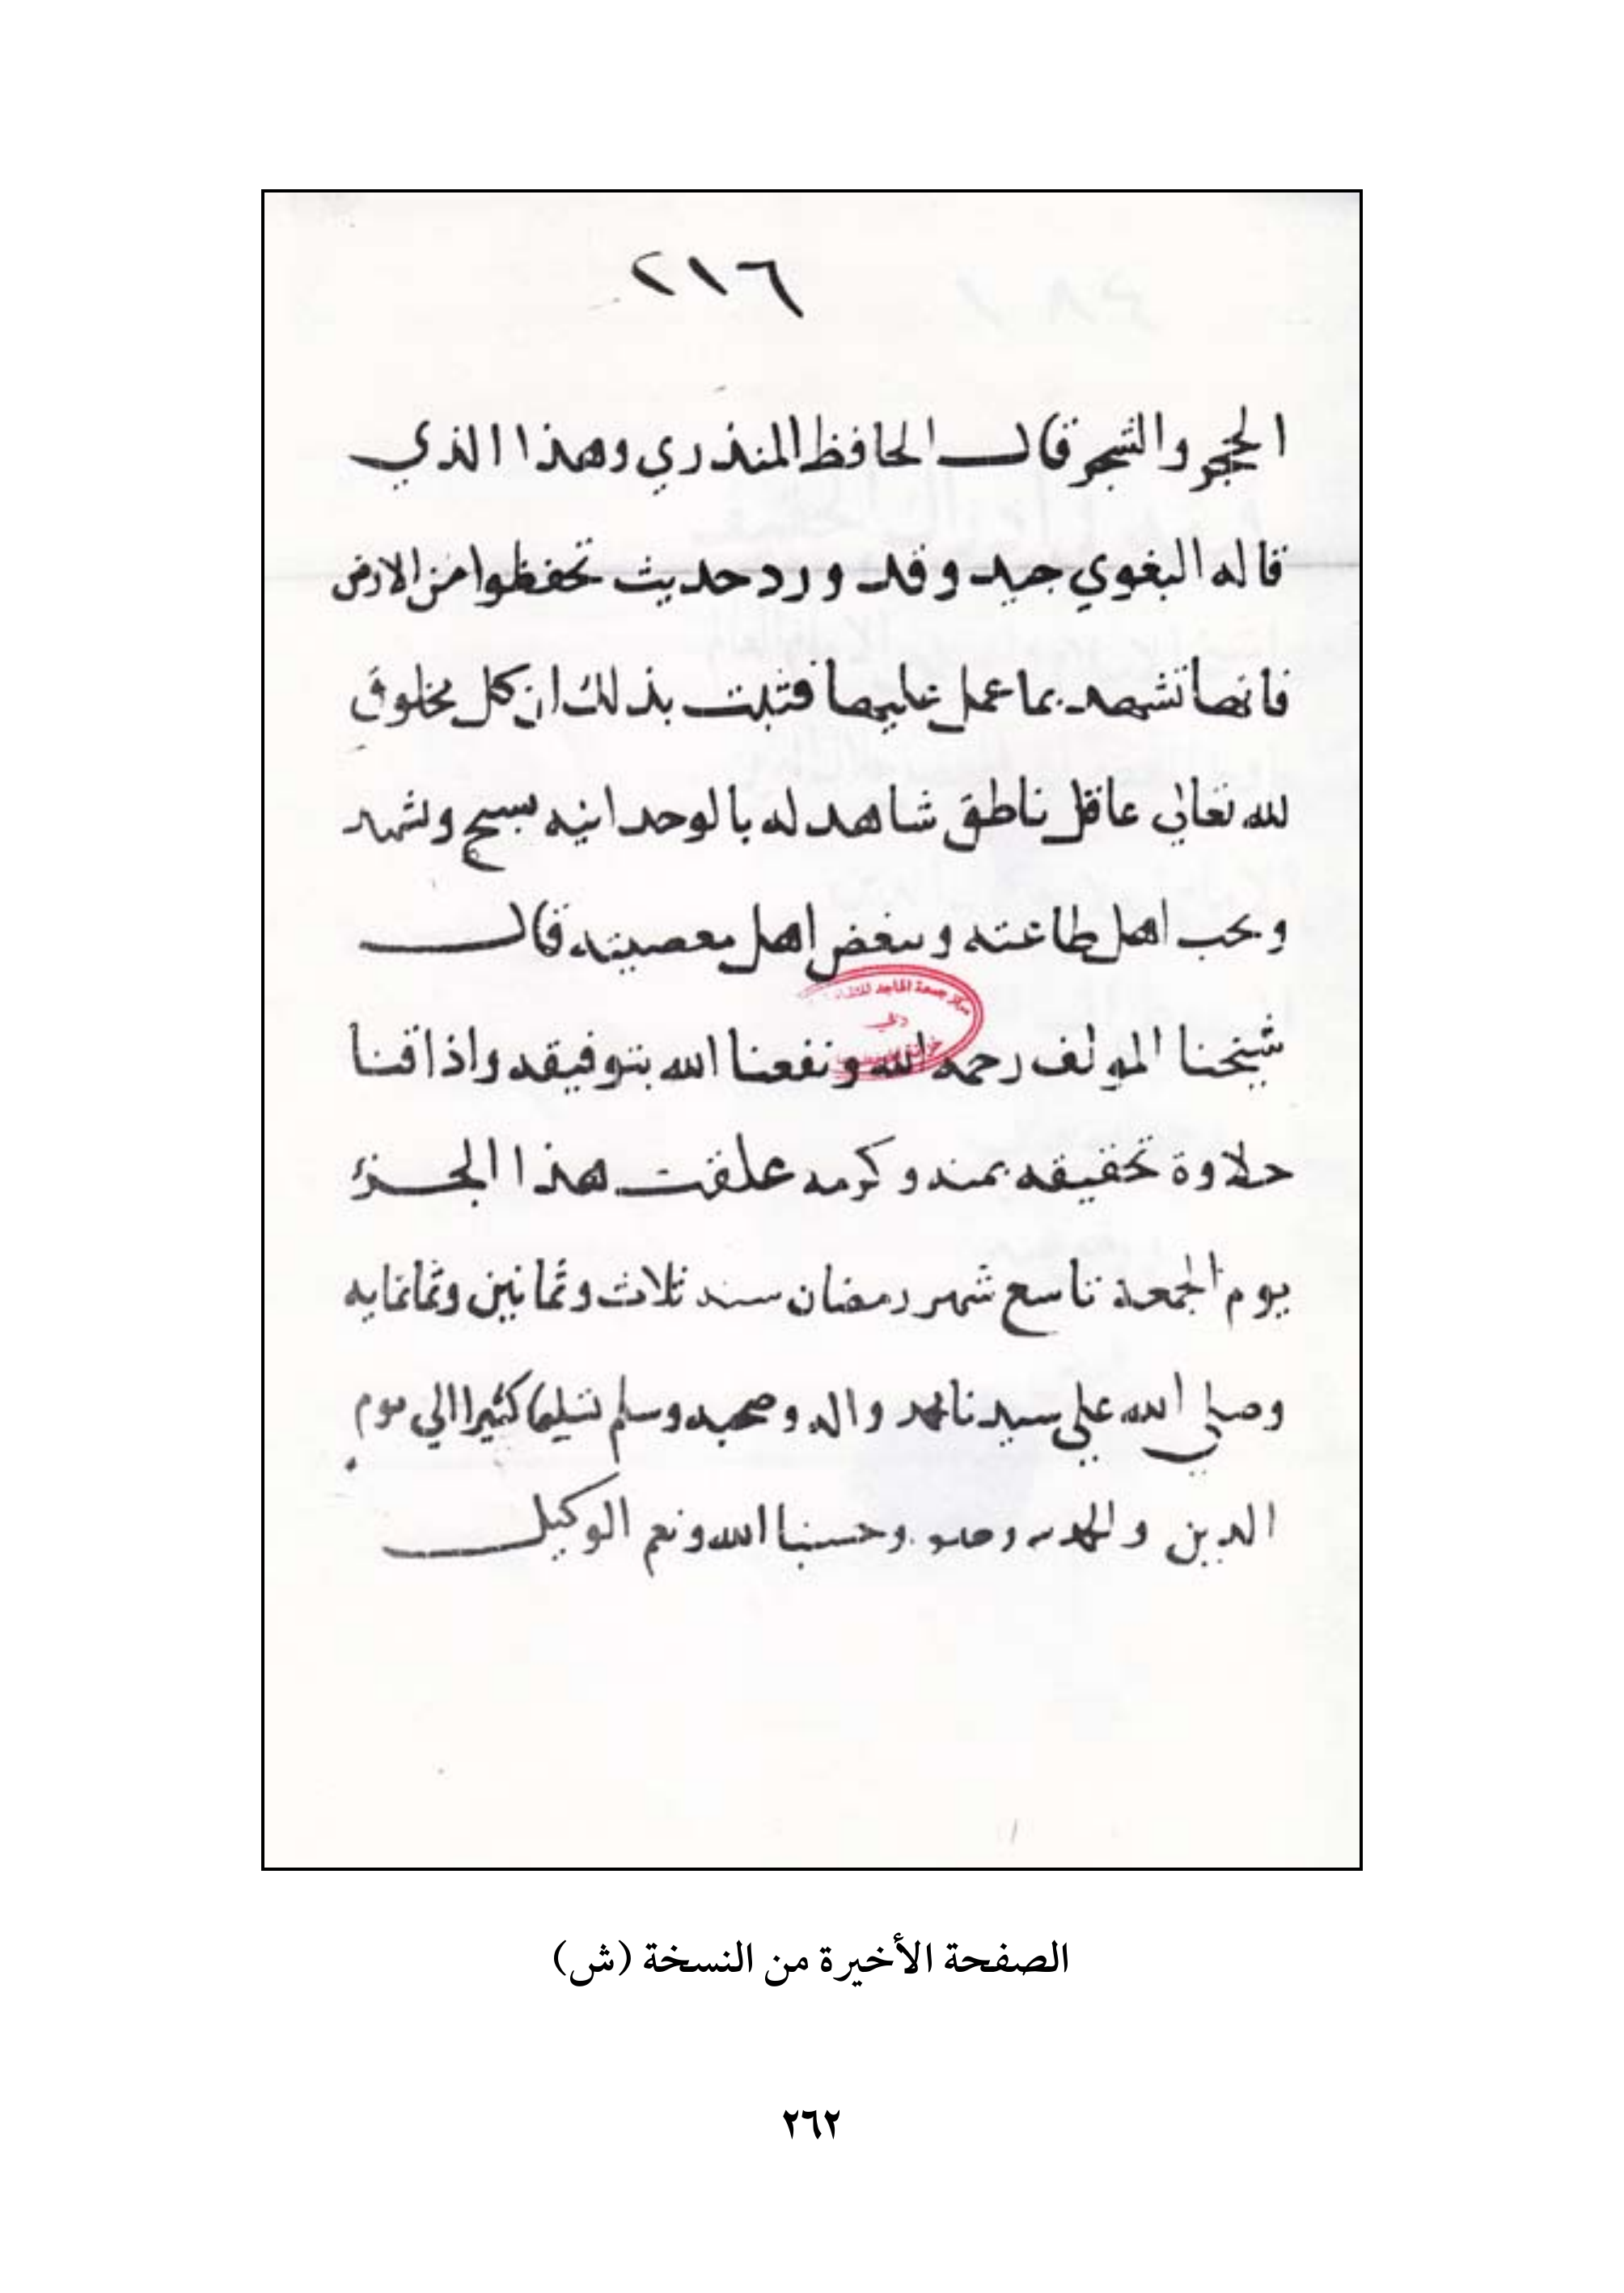 ٢١٦
الحجر والشجر قال الحافظ المنذري وهذا الذي
قاله البغوي جيد وقد ورد حديث تحفظوا من الارض
فانها تشهد بما عمل عليها فثبت بذلك ان كل مخلوق
لله تعالى عاقل ناطق شاهد له بالوحدانيه يسبح ويشهد
ويحب اهل طاعته ويبغض اهل معصيته قال
شيخنا المولف رحمه الله ونفعنا الله بتوفيقه واذاقنا
حلاوة تحقيقه بمنه وكرمه علقت هذا الجزء
يوم الجمعة تاسع شهر رمضان سنه ثلاث وثمانين وثمانمايه
وصلى الله على سيدنا محمد واله وصحبه وسلم تسليما كثيرا الي يوم
الدين والحمد لله وحده وحسبنا الله ونعم الوكيل
مركز جمعة الماجد
دبي
الصفحة الأخيرة من النسخة (ش)
٢٦٢